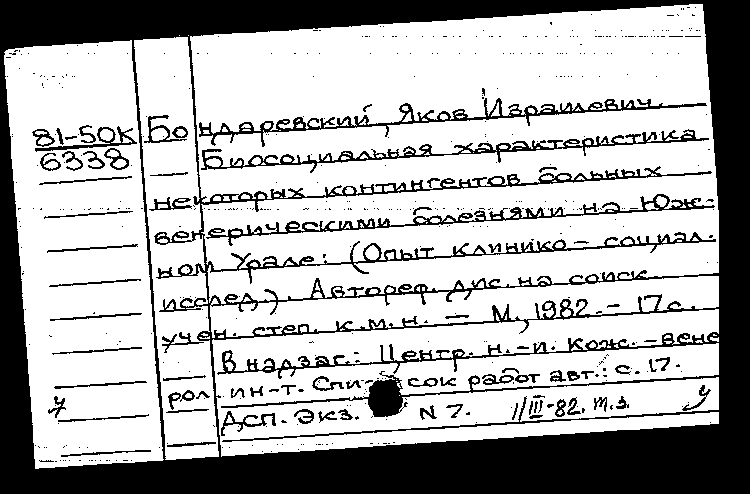 81-50К Бондаревский, Яков Израилевич.
6338 Биосоциальная характеристика
некоторых контингентов больных
венерическими болезнями на Юж-
ном Урале: (Опыт клинико-социал.
исслед.). Автореф. дис. на соиск.
учен. степ. к.м.н. — М., 1982. - 17 с.
В надзаг.: Центр. н.-и. кож.-вене
рол. ин-т. Список работ авт.: с. 17.
ДСП. Экз. N 7. 11/III-82. т.з.